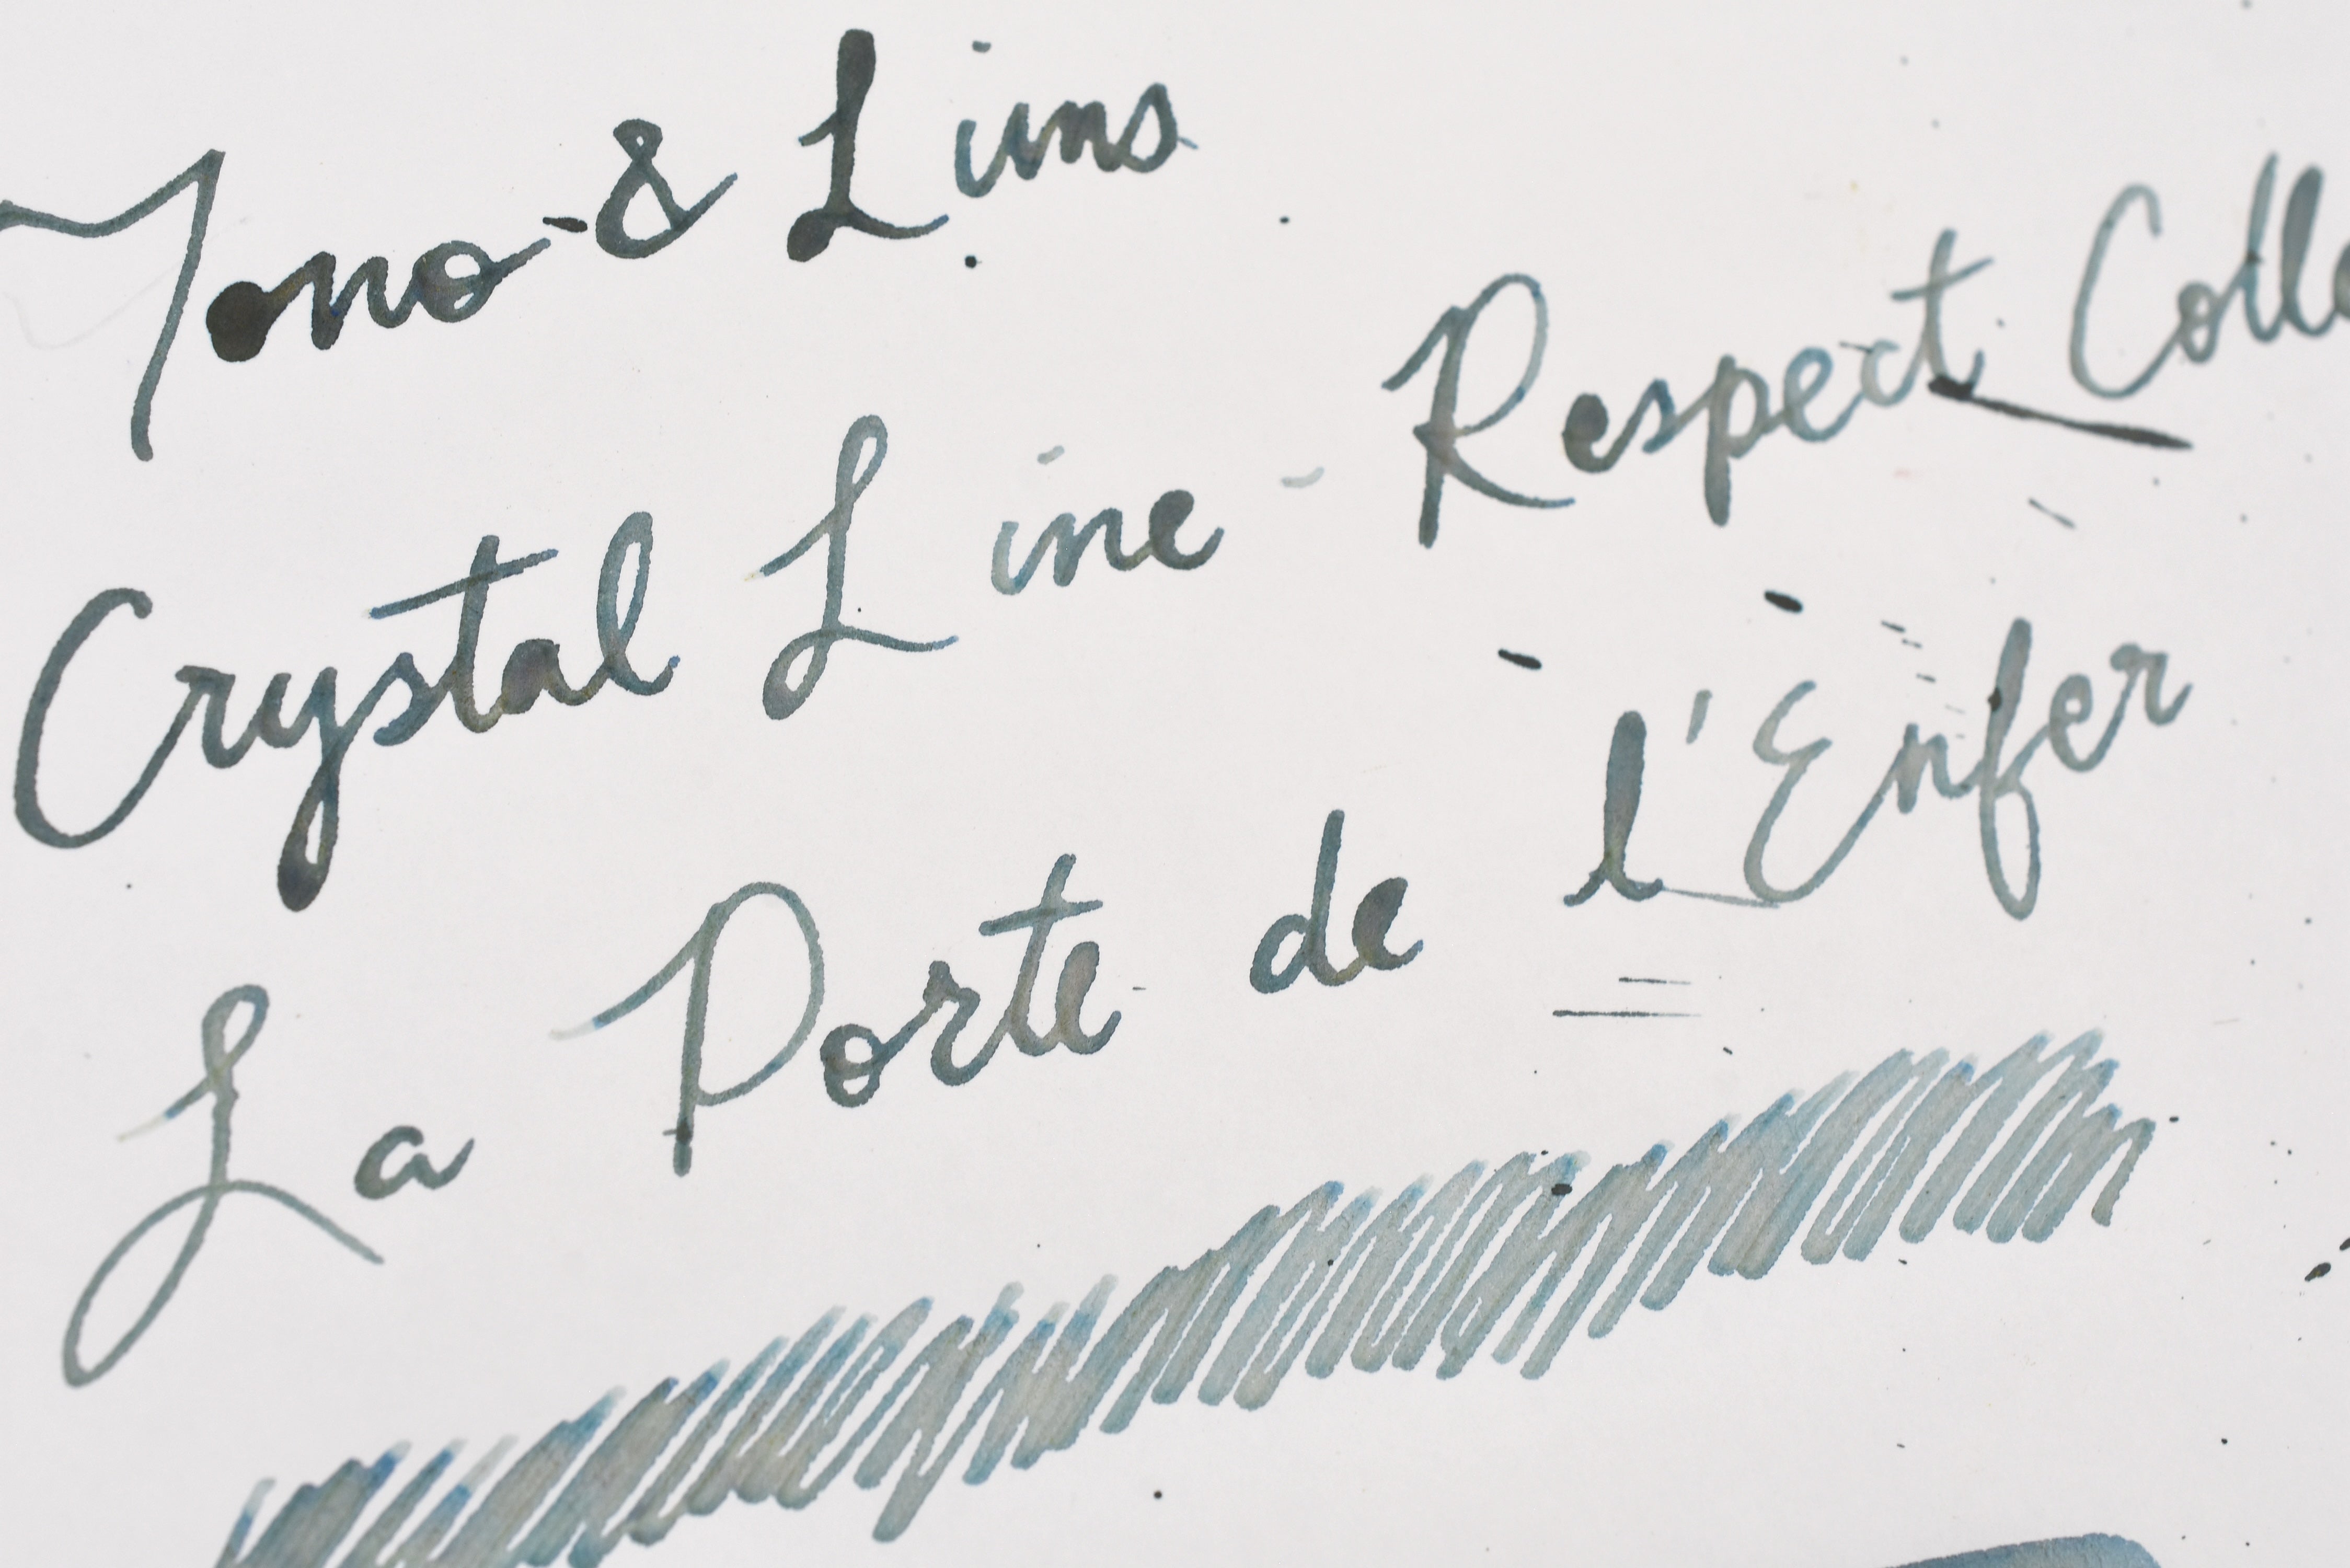 Tono & Lims
Crystal Line - Respect Colle
La Porte de l'Enfer